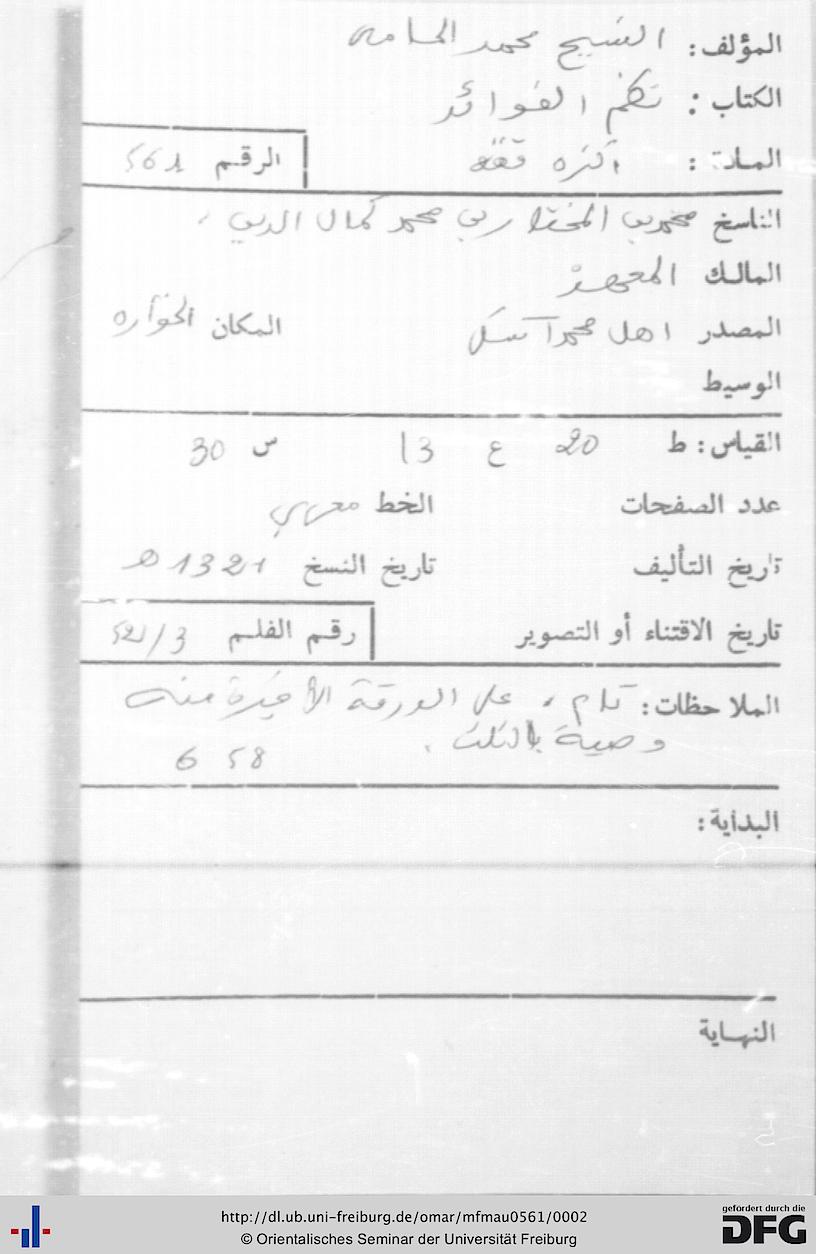 المؤلف: الشيخ محمد الحامي
الكتاب: نظم الفوائد
المادة: أكثره فقه الرقم 561
الناسخ محمد بن المختار بن محمد كمال الدين
المالك المعهد
المصدر اهل محمد آسكل المكان
الوسيط
القياس: ط 20 ع 13 س 30
عدد الصفحات الخط مغربي
تاريخ التأليف تاريخ النسخ 1321 هـ
تاريخ الاقتناء أو التصوير رقم الفلم 52/3
الملاحظات: تام، على الورقة الأخيرة منه
وصية بالثلث. 58 6
البداية:
النهاية
http://dl.ub.uni-freiburg.de/omar/mfmau0561/0002
© Orientalisches Seminar der Universität Freiburg
gefördert durch die
DFG